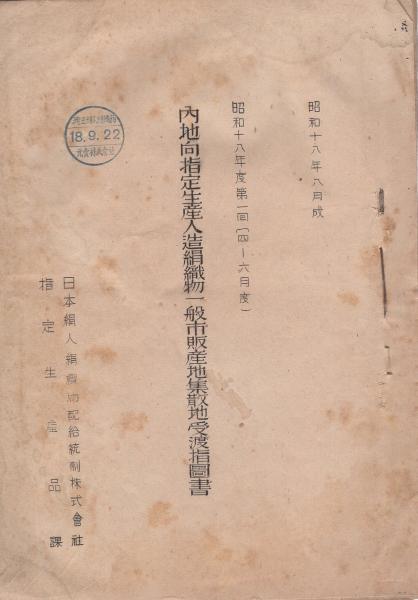 昭和十八年八月成
昭和十八年度第一回(四-六月度)
內地向指定生産人造絹織物一般市販産地集散地受渡指圖書
日本絹人絹織物配給統制株式會社
指定生産品課
18.9.22